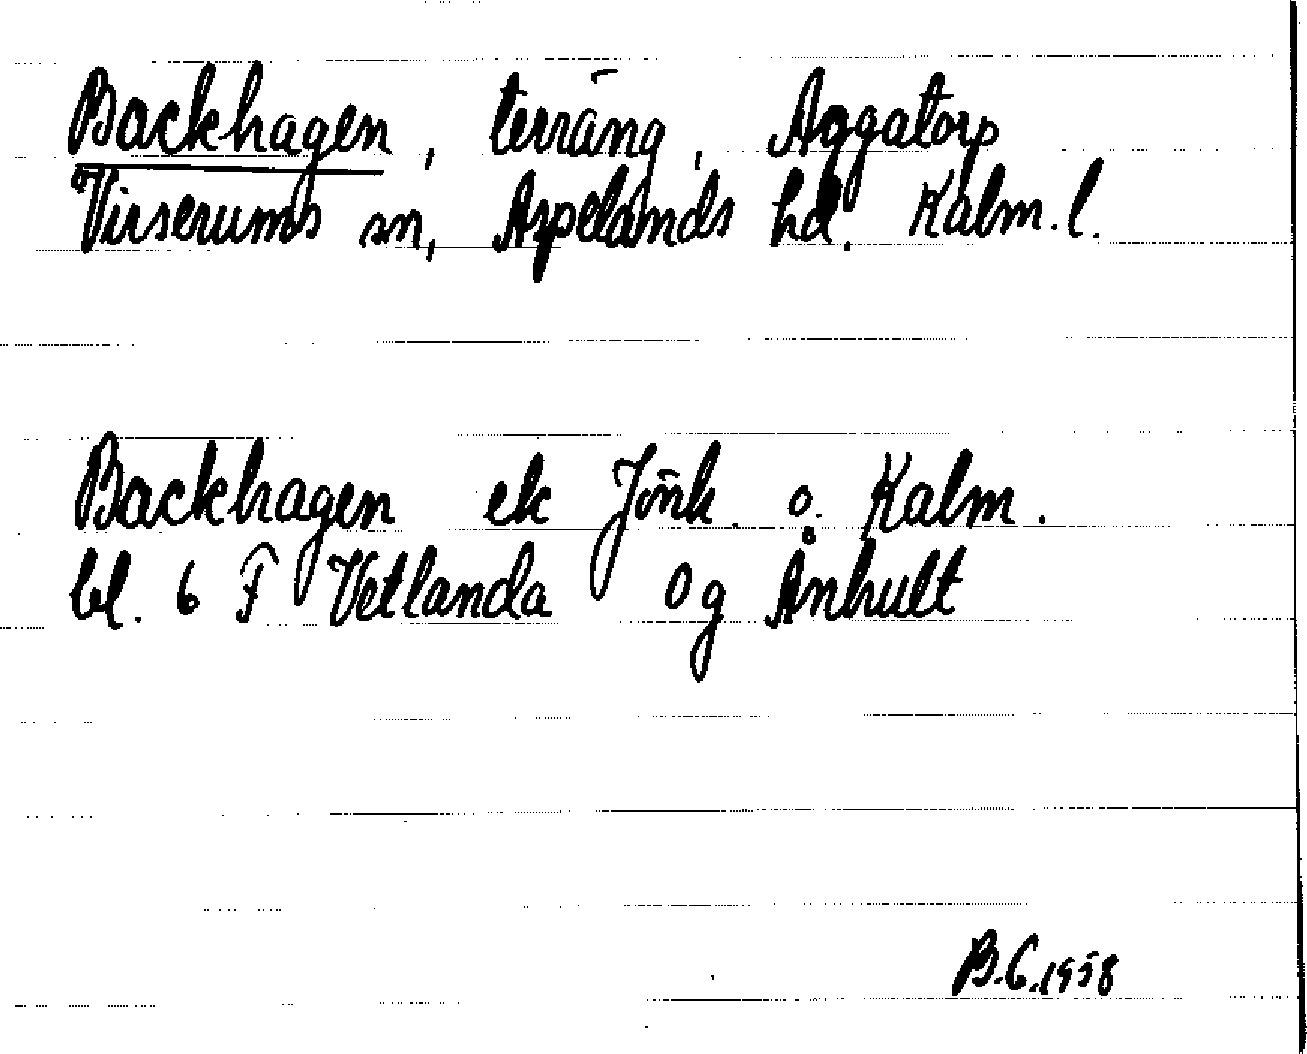 Backhagen, terräng, Aggatorp
Virserums sn, Aspelands hd. Kalm. l.
Backhagen ek Jönk. o. Kalm.
bl. 6 F Vetlanda Og Ånhult
B.C.1958